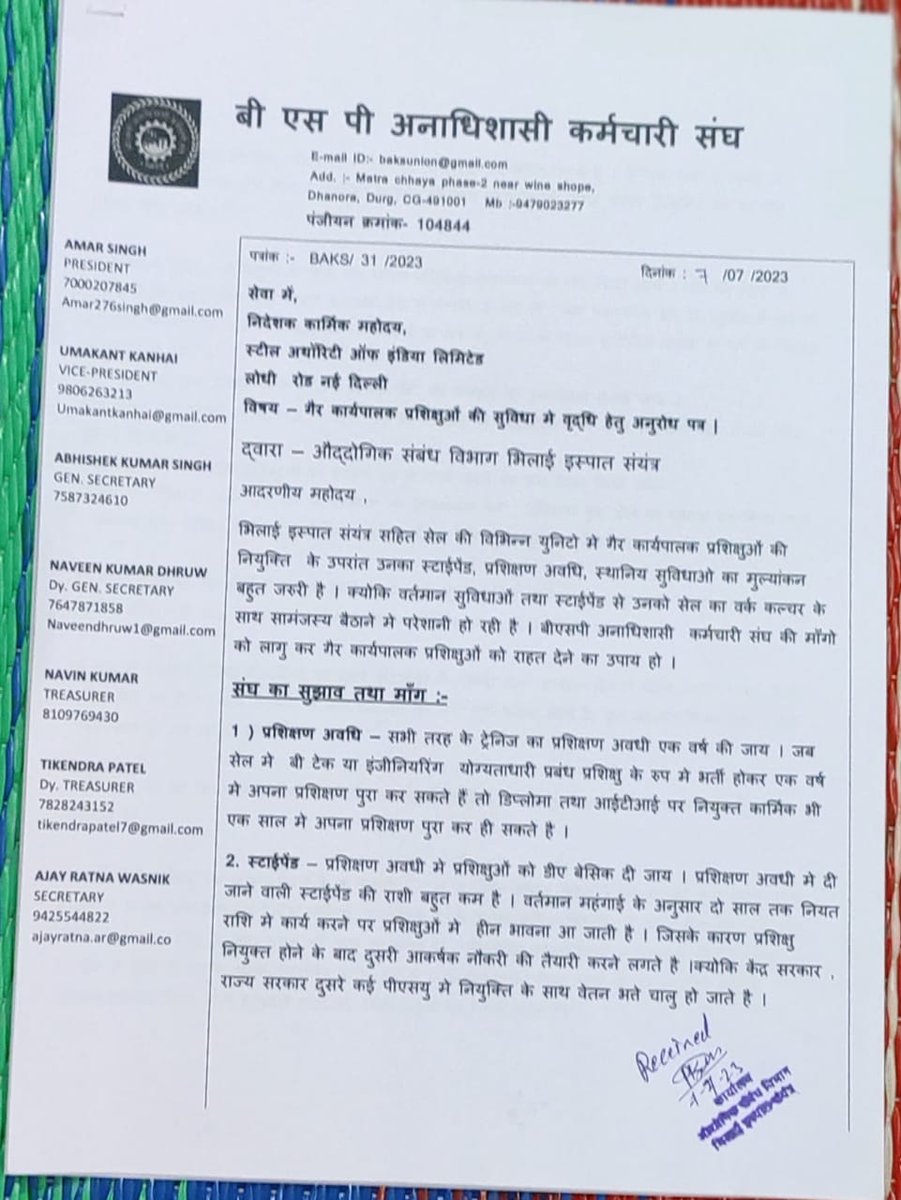 बी एस पी अनाधिशासी कर्मचारी संघ
E-mail ID:- baksunion@gmail.com
Add. :- Matra chhaya phase-2 near wine shope,
Dhanora, Durg, CG-491001 Mb :-9479023277
पंजीयन क्रमांक- 104844
AMAR SINGH
PRESIDENT
7000207845
Amar276singh@gmail.com
UMAKANT KANHAI
VICE-PRESIDENT
9806263213
Umakantkanhai@gmail.com
ABHISHEK KUMAR SINGH
GEN. SECRETARY
7587324610
NAVEEN KUMAR DHRUW
Dy. GEN. SECRETARY
7647871858
Naveendhruw1@gmail.com
NAVIN KUMAR
TREASURER
8109769430
TIKENDRA PATEL
Dy. TREASURER
7828243152
tikendrapatel7@gmail.com
AJAY RATNA WASNIK
SECRETARY
9425544822
ajayratna.ar@gmail.co
पत्रांक :- BAKS/ 31 /2023 दिनांक : 7 /07 /2023
सेवा में,
निदेशक कार्मिक महोदय,
स्टील अथॉरिटी ऑफ इंडिया लिमिटेड
लोधी रोड नई दिल्ली
विषय – गैर कार्यपालक प्रशिक्षुओं की सुविधा मे वृद्धि हेतु अनुरोध पत्र |
द्वारा – औद्दोगिक संबंध विभाग भिलाई इस्पात संयंत्र
आदरणीय महोदय ,
भिलाई इस्पात संयंत्र सहित सेल की विभिन्न युनिटो मे गैर कार्यपालक प्रशिक्षुओं की
नियुक्ति के उपरांत उनका स्टाईपेंड, प्रशिक्षण अवधि, स्थानिय सुविधाओ का मुल्यांकन
बहुत जरुरी है । क्योकि वर्तमान सुविधाओं तथा स्टाईपेंड से उनको सेल का वर्क कल्चर के
साथ सामंजस्य बैठाने मे परेशानी हो रही है । बीएसपी अनाधिशासी कर्मचारी संघ की माँगो
को लागु कर गैर कार्यपालक प्रशिक्षुओं को राहत देने का उपाय हो ।
संघ का सुझाव तथा माँग :-
1 ) प्रशिक्षण अवधि – सभी तरह के ट्रेनिज का प्रशिक्षण अवधी एक वर्ष की जाय । जब
सेल मे बी टेक या इंजीनियरिंग योग्यताधारी प्रबंध प्रशिक्षु के रुप मे भर्ती होकर एक वर्ष
मे अपना प्रशिक्षण पुरा कर सकते हैं तो डिप्लोमा तथा आईटीआई पर नियुक्त कार्मिक भी
एक साल मे अपना प्रशिक्षण पुरा कर ही सकते है ।
2. स्टाईपेंड – प्रशिक्षण अवधी मे प्रशिक्षुओं को डीए बेसिक दी जाय । प्रशिक्षण अवधी मे दी
जाने वाली स्टाईपेंड की राशी बहुत कम है । वर्तमान महंगाई के अनुसार दो साल तक नियत
राशि मे कार्य करने पर प्रशिक्षुओं मे हीन भावना आ जाती है । जिसके कारण प्रशिक्षु
नियुक्त होने के बाद दुसरी आकर्षक नौकरी की तैयारी करने लगते है ।क्योकि केंद्र सरकार ,
राज्य सरकार दुसरे कई पीएसयु मे नियुक्ति के साथ वेतन भते चालु हो जाते है ।
Received
कार्यालय
औद्योगिक संबंध विभाग
भिलाई इस्पात संयंत्र